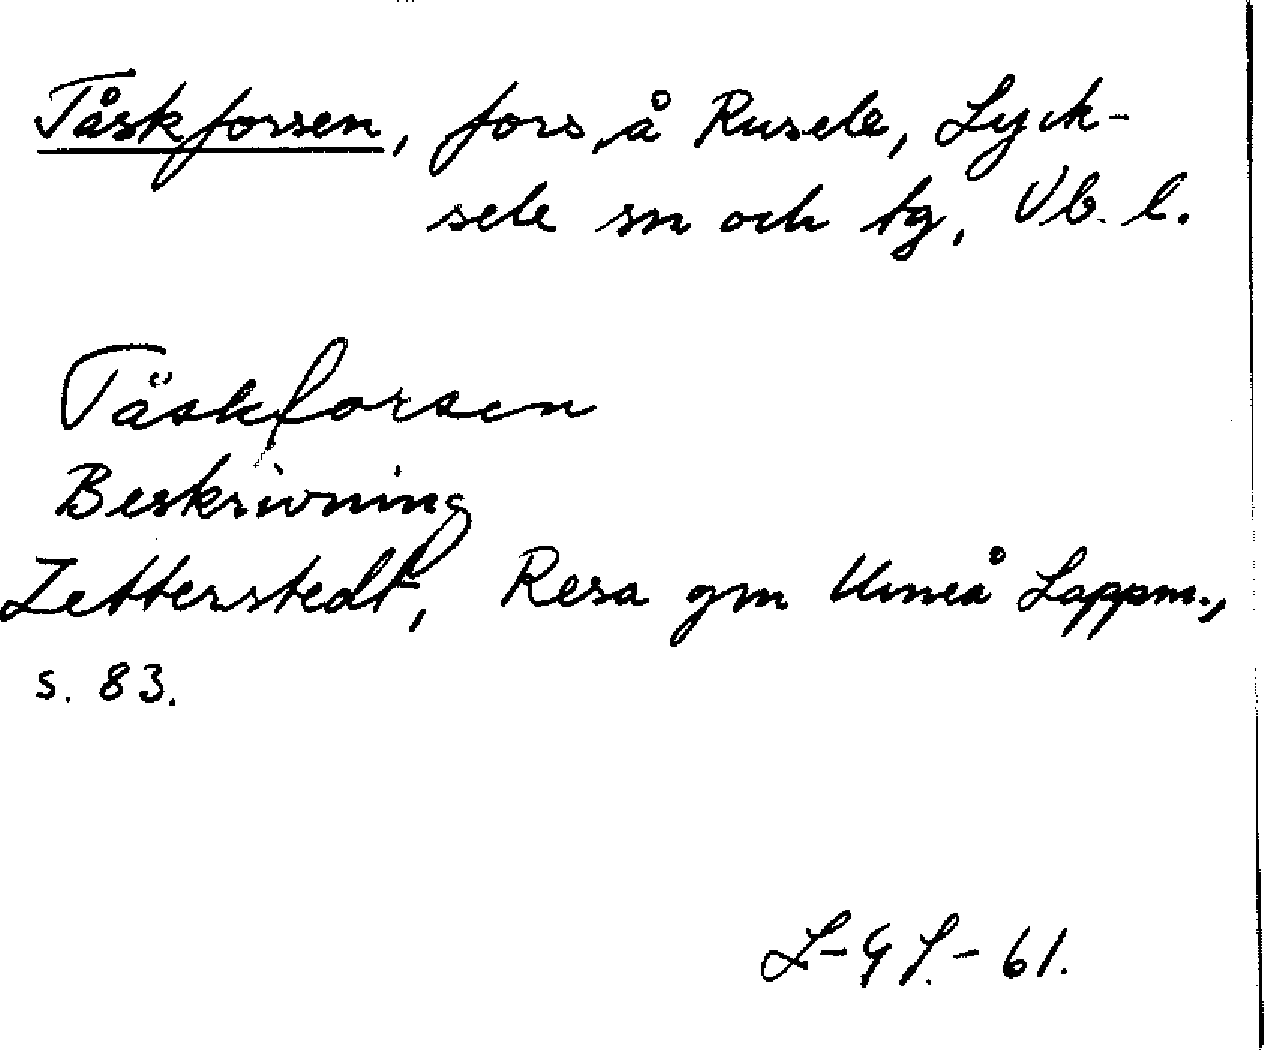 Tåskforsen, fors, å Rusele, Lyck-
sele sn och tg, Vb. l.
Täskforsen
Beskrivning
Zetterstedt, Resa gm Umeå Lappm.,
s. 83.
L-G J.-61.